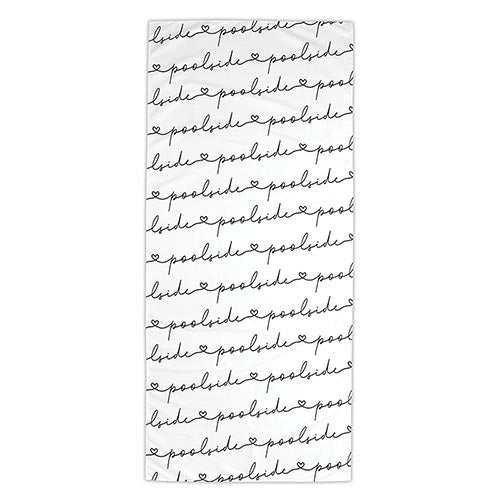 lside poolside p
poolside poolside
lside poolside p
poolside poolside
lside poolside p
poolside poolside
lside poolside p
poolside poolside
lside poolside p
poolside poolside
lside poolside p
poolside poolside
lside poolside p
poolside poolside
poolside